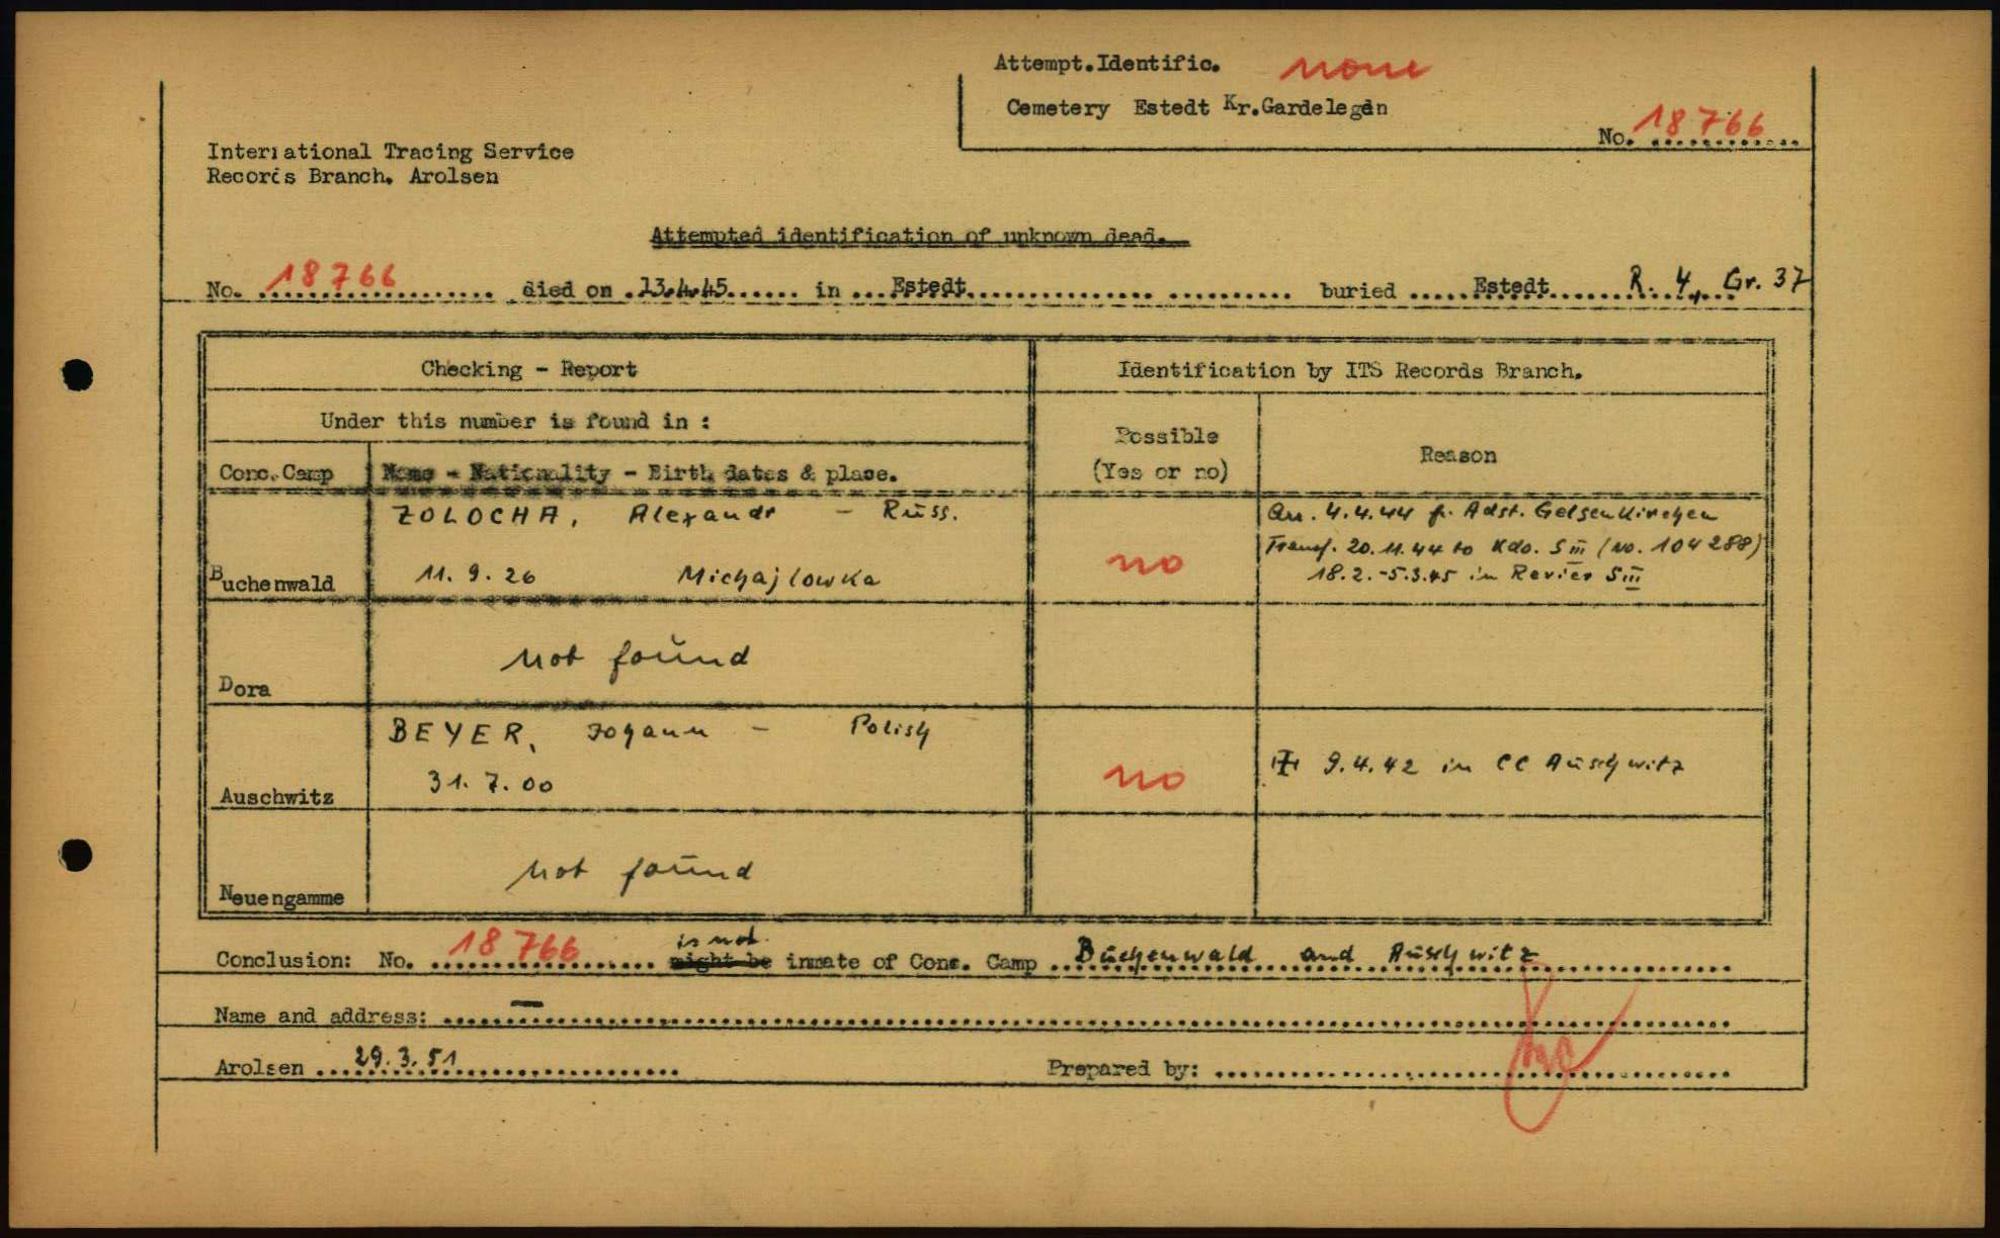 Attempt.Identific. none
Cemetery Estedt Kr.Gardelegen
No. 18766
International Tracing Service
Records Branch. Arolsen
Attempted identification of unknown dead.
No. 18766 died on 13.4.45 in Estedt buried Estedt R. 4, Gr. 37
Checking - Report
Identification by ITS Records Branch.
Under this number is found in :
Possible
(Yes or no)
Reason
Conc.Camp
Name - Nationality - Birth dates & place.
ZOLOCHA, Alexandr - Russ.
Arr. 4.4.44 fr. Adst. Gelsenkirchen
Transf. 20.11.44 to Kdo. S III (No. 104288)
Buchenwald
11.9.26 Michajlowka
no
18.2.-5.3.45 in Revier S III
Dora
not found
BEYER, Johann - Polish
31.7.00
Auschwitz
no
9.4.42 in CC Auschwitz
Neuengamme
not found
is not
Conclusion: No. 18766 might be inmate of Conc. Camp Buchenwald and Auschwitz
Name and address: —
Arolsen 29.3.51
Prepared by: